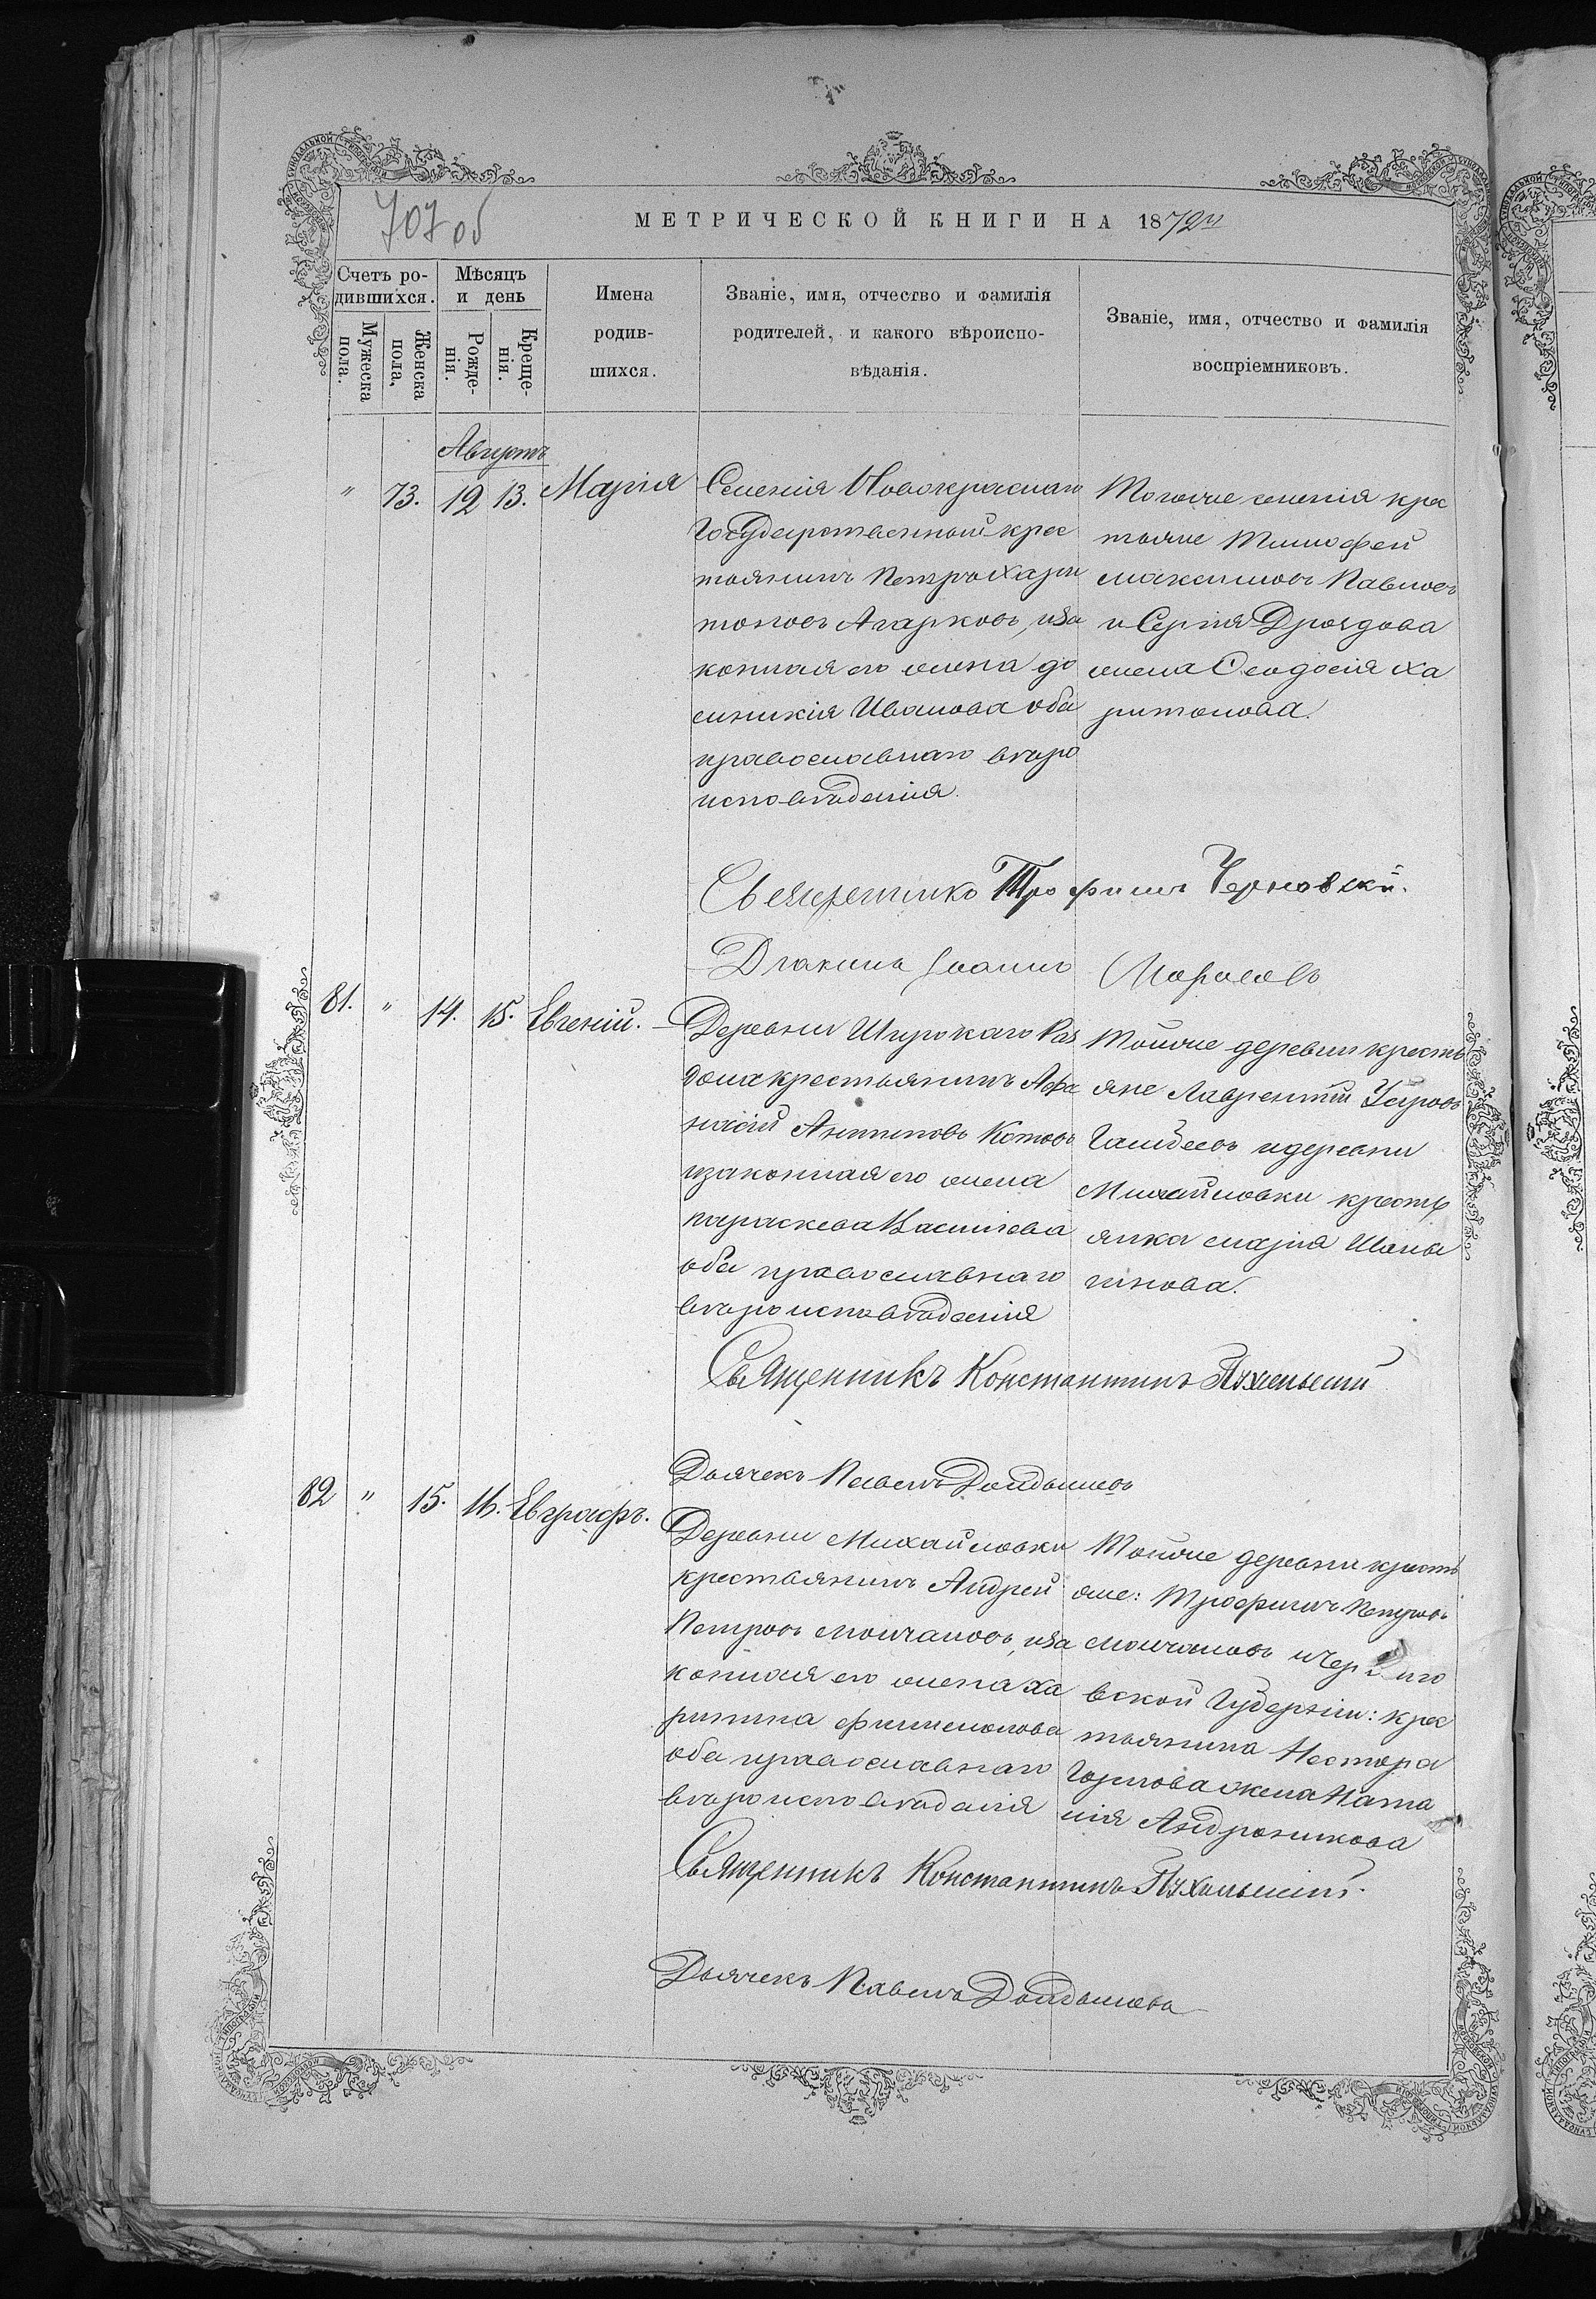 707 об
МЕТРИЧЕСКОЙ КНИГИ НА 1872 г
Счетъ родившихся.
Мужеска пола.
Женска пола,
Мѣсяцъ и день
Рожденія.
Крещенія.
Имена
родив-
шихся.
Званіе, имя, отчество и фамилія
родителей, и какого вѣроиспо-
вѣданія.
Званіе, имя, отчество и фамилія
воспріемниковъ.
Августъ
" 73. 12 13. Марія
Селенія Новокраснаго
Государственный крес
тьянинъ Петръ Хари
тоновъ Агарковъ, иза
конная его жена до
мникія Иванова оба
православнаго вѣро
исповѣданія.
Тогоже селенія крес
тьяне Тимофей
Максимовъ Павловъ
и Сергія Дроздова
жена Феодосія Ха
ритонова.
Священникъ Трофимъ Черновскій.
Діаконъ Іоаннъ Морозовъ
81. " 14. 15. Евгеній.
Деревни Широкаго Раз
дола крестьянинъ Афа
насій Антиповъ Котовъ
изаконная его жена
параскева Васильева
оба православнаго
вѣроисповѣданія
Тойже деревни кресть
яне Лаврентій
и деревни
Михайловки кресть
янка марія
Священникъ Константинъ
Дьячекъ Павелъ
82 " 15. 16. Евграфъ.
Деревни Михайловки
крестьянинъ Андрей
Петровъ Молчановъ, иза
конная его жена Ха
ритина филимонова
оба православнаго
вѣроисповѣданія
Тойже деревни кресть
яне: Трофимъ Петровъ
Молчановъ и Черниго
вской Губерніи: крес
тьянина Нестора
Горлова жена Ната
лія Андроникова
Священникъ Константинъ
Дьячекъ Павелъ